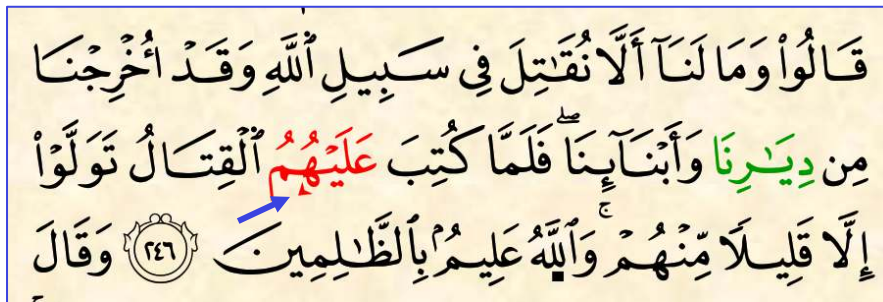 قَالُوا۟ وَمَا لَنَآ أَلَّا نُقَـٰتِلَ فِى سَبِيلِ ٱللَّهِ وَقَدْ أُخْرِجْنَا
مِن دِيَـٰرِنَا وَأَبْنَآئِنَا ۖ فَلَمَّا كُتِبَ عَلَيْهُمُ ٱلْقِتَالُ تَوَلَّوْا۟
إِلَّا قَلِيلًا مِّنْهُمْ ۚ وَٱللَّهُ عَلِيمٌۢ بِٱلظَّـٰلِمِينَ ٢٤٦ وَقَالَ